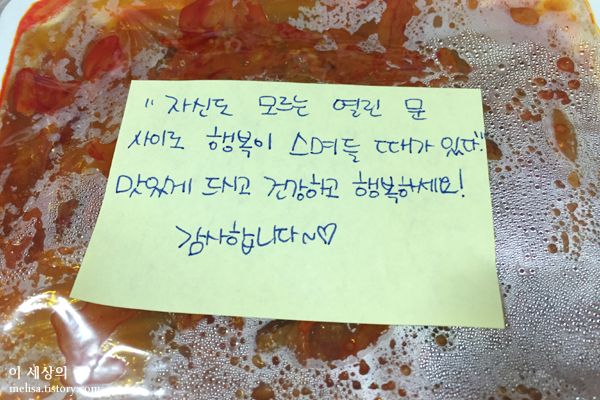 "자신도 모르는 열린 문
사이로 행복이 스며들 때가 있다."
맛있게 드시고 건강하고 행복하세요!
감사합니다~♡
이 세상의
melisa.tistory.com